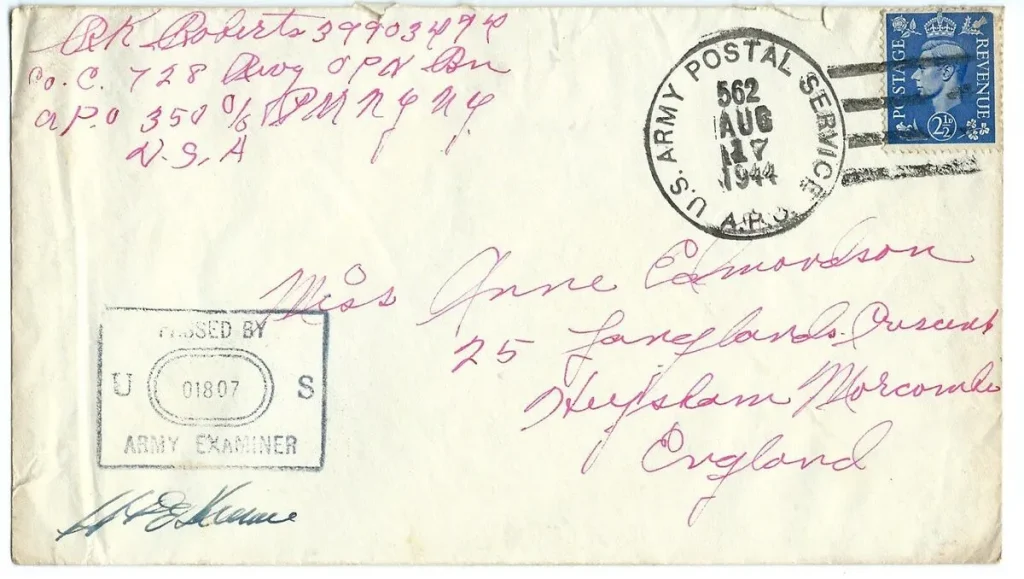 RK Roberts 39903474
Co. C. 728 Rwy OPN Bn
A.P.O 350 c/o PM NY NY
U.S.A
U.S. ARMY POSTAL SERVICE
562
AUG
17
1944
A.P.O.
POSTAGE
REVENUE
2½
Miss Anne Edmondson
25 Langlands Crescent
Heysham Morcombe
England
PASSED BY
U 01807 S
ARMY EXAMINER